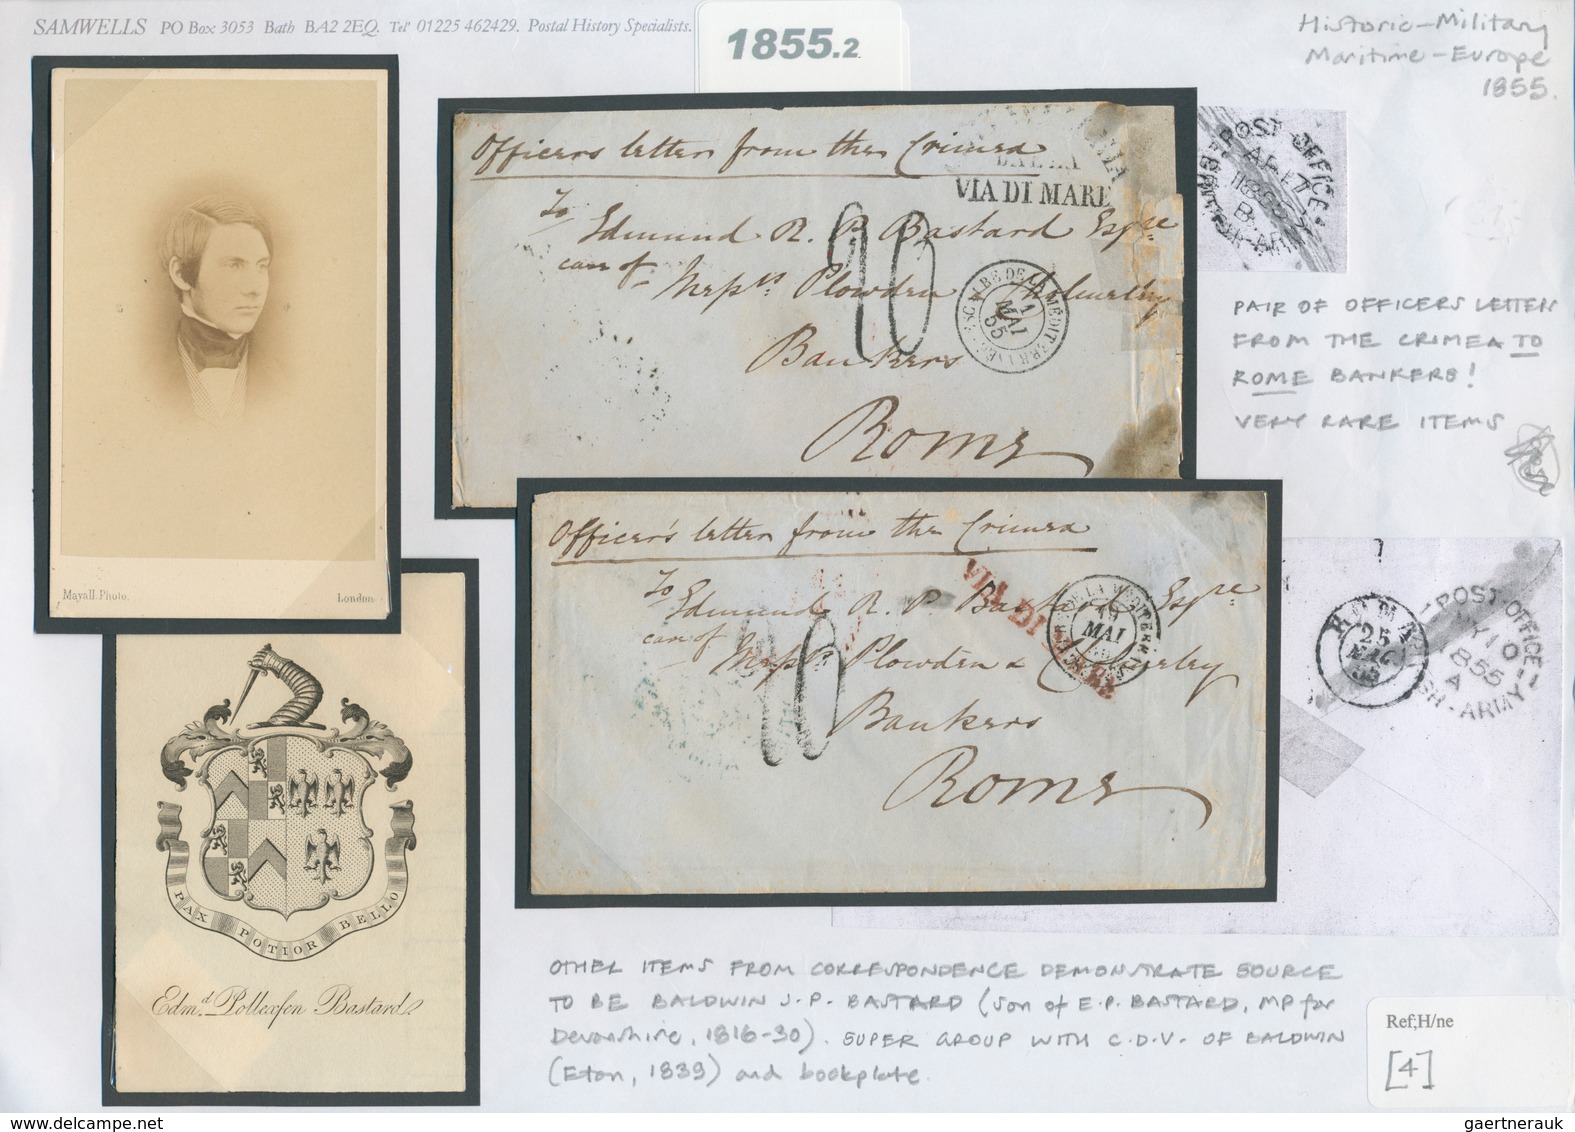 SAMWELLS PO Box 3053 Bath BA2 2EQ. Tel' 01225 462429. Postal History Specialists.
1855.2
Historic-Military
Maritime-Europe
1855.
Mayall. Photo.
London.
Officers letter from the Crimea
VIA DI MARE
To
Edmund R. P. Bastard Esqre
care of
Plowden
Bankers
Rome
26
1
MAI
55
POST OFFICE
AP 17
1855
B
PAIR OF OFFICERS LETTER
FROM THE CRIMEA TO
ROME BANKERS!
VERY RARE ITEMS
Officer's letter from the Crimea
To
Edmund R. P. Bastard Esqre
care of
Plowden &
Bankers
Rome
VIA DI MARE
MAI
ROMA
25
MAG
55
POST-OFFICE
1855
A
SH-ARMY
PAX POTIOR BELLO
Edmd. Pollexfen Bastard
OTHER ITEMS FROM CORRESPONDENCE DEMONSTRATE SOURCE
TO BE BALDWIN J.P. BASTARD (son of E.P. BASTARD, MP for
Devonshire, 1816-30). SUPER GROUP WITH C.D.V. OF BALDWIN
(Eton, 1839) and bookplate.
Ref;H/ne
[4]
gaertnerauk
www.delcampe.net